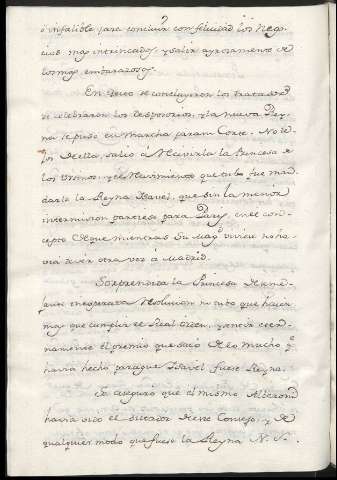 é infalible para concluir con felicidad los nego-
cios mas intrincados, y salir ayrosamente de
los mas embarazosos.
En efecto se concluyeron los tratados
se celebraron los desposorios, y la nueva Rey-
na se puso en marcha para mi Corte.
salió á recivirla la Princesa de
los Ursinos, y el recivimiento que tubo fue man-
darla la Reyna Isavel, que sin la menor
intermision partiese para Paris, en el con-
cepto de que mientras Su Magd. viviese no ha-
via de ver otra vez á Madrid.
Sorprendida la Princesa de
inesperada resolucion no tubo que hacer
mas que cumplir el Real orden, y
el premio que sacó de lo mucho qe.
havia hecho para que Isavel fuese Reyna.
Se aseguró que el mismo Alberoni
havia sido el de este Consejo, y de
qualquier modo que fuese la Reyna N. S.